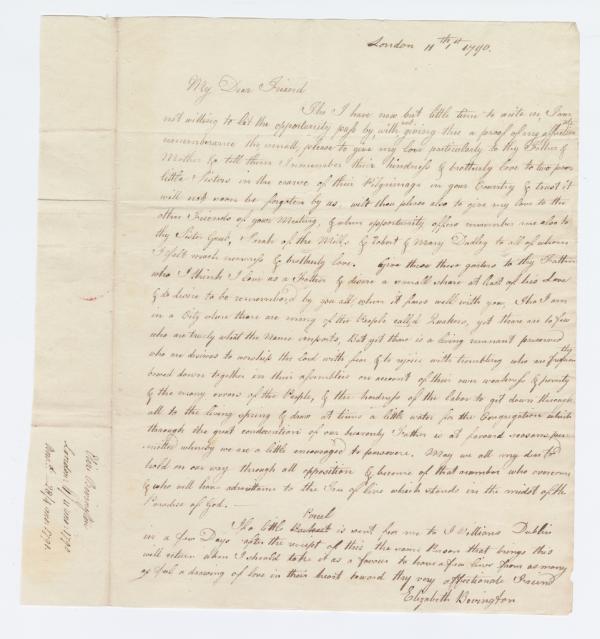 London 11th 1st 1790.
My Dear Friend
Tho I have now but little time to write in, I am
not willing to let the opportunity pass by, without giving thee a proof of my affectionate
remembrance thy small, please to give my love particularly to thy Father &
Mother & tell them I remember their kindness & brotherly love to two poor
little Sisters in the course of their Pilgrimage in your Country & trust it
will not soon be forgoten by us, wilt thou please also to give my love to the
other Friends of your Meeting, & when opportunity offers remember me also to
thy Sister Sarah of the Mills, & Robert & Mary Dudley to all of whom
I felt much nearness & brotherly love. Give these three to thy Father
who I think I love as a Father & desire a small share at least of his Love
& do desire to be remembred by you all, when it fares well with you, Tho I am
in a City where there are many of the People call'd Quakers, yet there are to few
who are truly what the Name imports, But yet there is a living remnant preserved
who are desirous to worship the Lord with fear & to rejoice with trembling who are frequently
bowed down together in their assemblies on account of their own weakness & poverty
& the many errors of the People, & the hardness of the labor to get down through
all to the living spring & draw at times a little water for the Congregation which
through the great condescention of our heavenly Father is at favord seasons per-
mitted whereby we are a little encouraged to persevere. May we all my dear
hold on our way through all opposition & become of that number who overcome
& who will have admittance to the Tree of live which stands in the midst of the
Paradise of God. —
Parcel
The little is sent for me to J Williams Dublin
in a few Days after the receipt of this the same Person that brings this
will return when I should take it as a favour to have a few lines from as many
as feel a drawing of love in their heart toward thy very affectionate Friend
Elizabeth Bevington
Eliz Bevington
London 1790